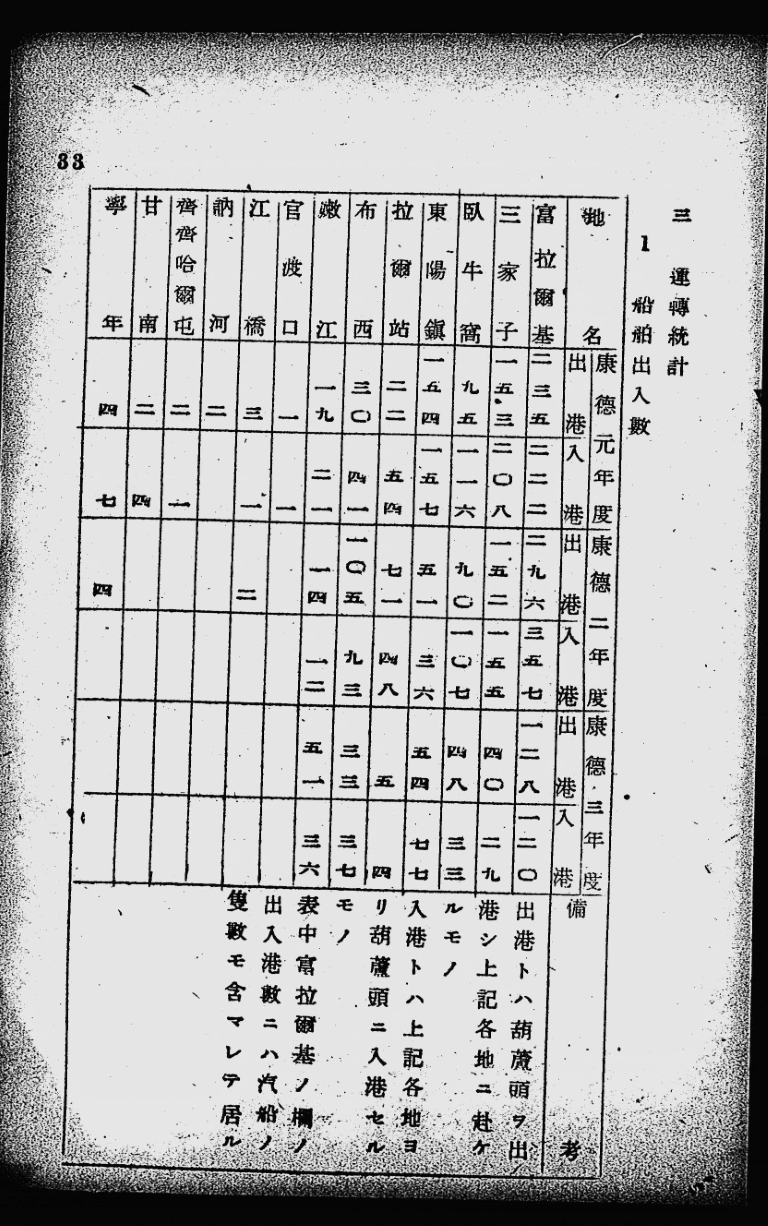 三 運轉統計
1 船舶出入數
地名 康德元年度 康德二年度 康德三年度 備考
出港 入港 出港 入港 出港 入港
富拉爾基 二三五 二二二 二九六 三五七 一二八 一二〇
三家子 一五三 二〇八 一五二 一五五 四〇 二九
臥牛窩 九五 一一六 九〇 一〇七 四八 三三
東陽鎭 一五四 一五七 五一 三六 五四 七七
拉爾站 二二 五四 七一 四八 五 四
布西 三〇 四一 一〇五 九三 三三 三七
嫩江 一九 二一 一四 一二 五一 三六
官渡口 一 一
江橋 三 一 二
訥河 二
齊齊哈爾屯 二 一
甘南 二 四
寧年 四 七 四
出港トハ葫蘆頭ヲ出
港シ上記各地ニ赴ケ
ルモノ
入港トハ上記各地ヨ
リ葫蘆頭ニ入港セル
モノ
表中富拉爾基ノ欄ノ
出入港數ニハ汽船ノ
隻數モ含マレテ居ル
33